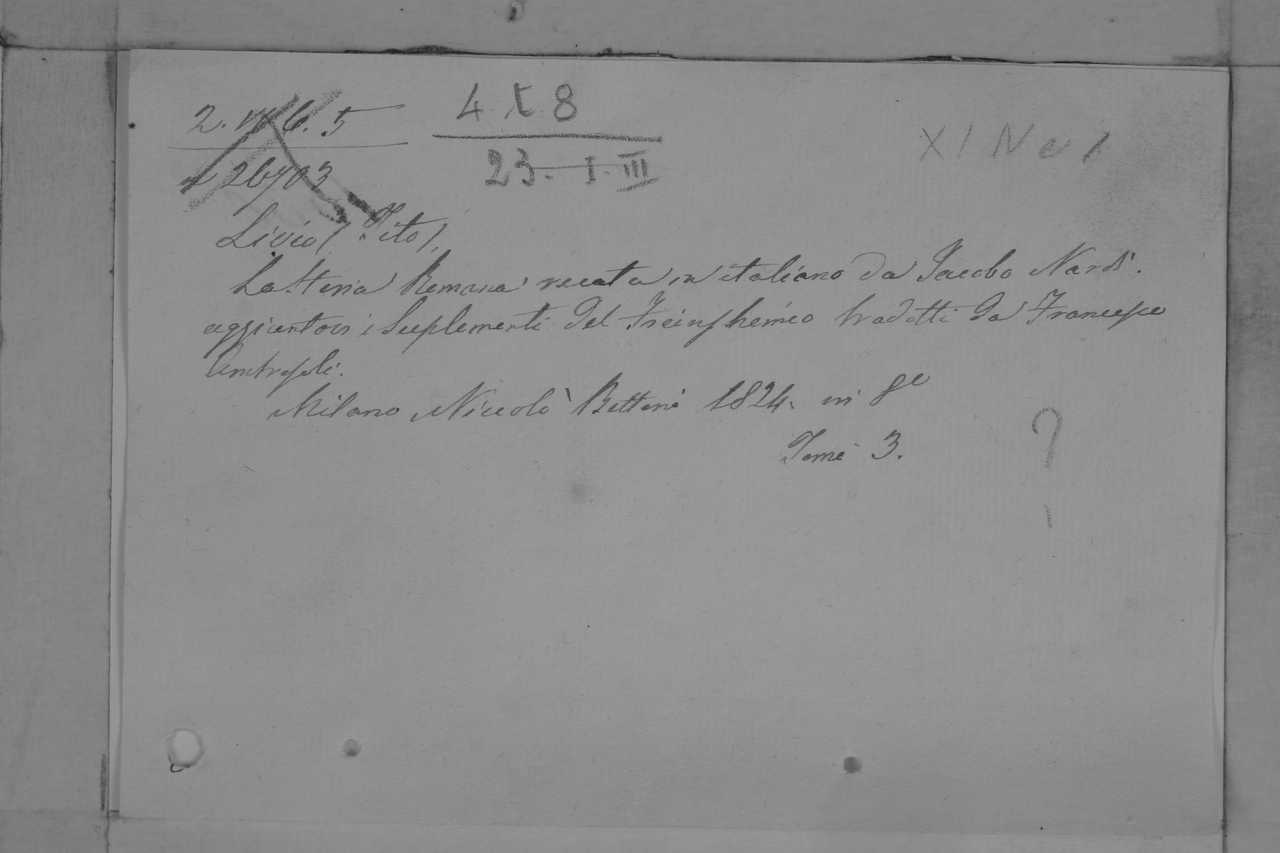 4 t 8
23. I. III
Livio (Tito).
La Storia Romana recata in italiano da Jacobo Nardi.
aggiuntovi i Suplementi del Freinshemio tradotti da Francesco
Milano Niccolò Bettoni 1824. in 8º
Tomi 3.
?